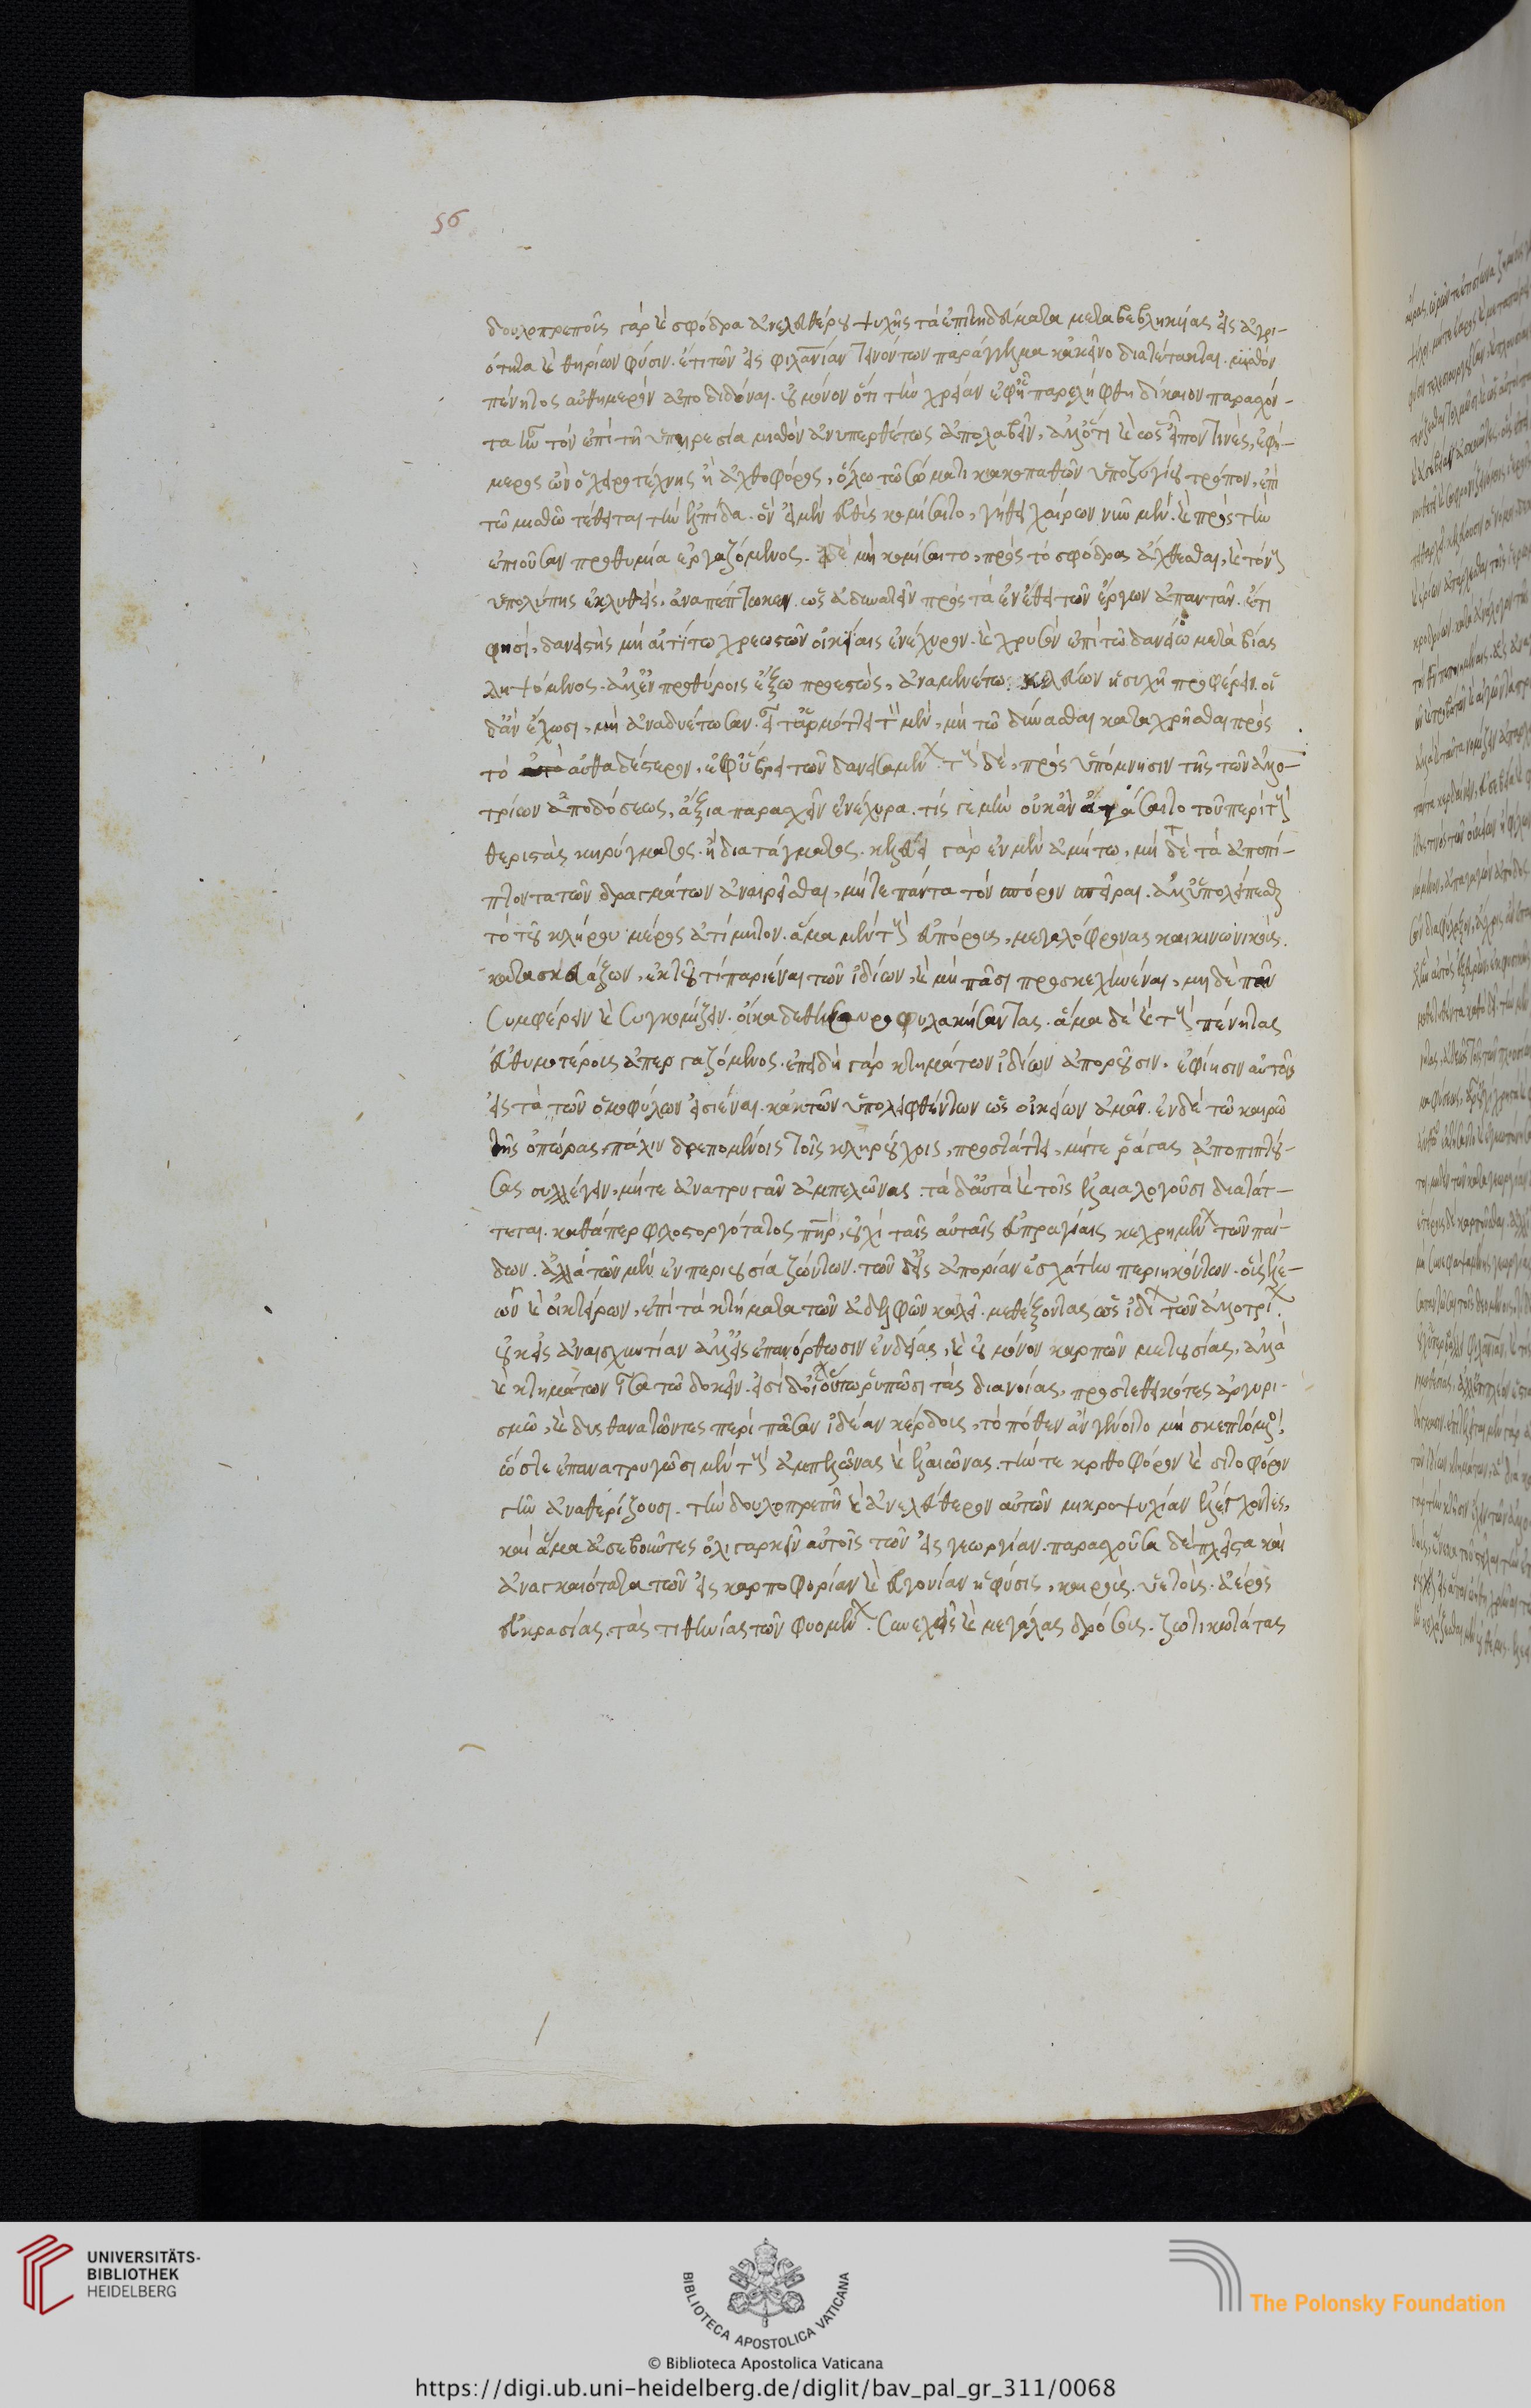 56
δουλοπρεποῦς γάρ καὶ σφόδρα ἀνελευθέρου ψυχῆς τὰ ἐπιτηδεύματα μεταβεβληκυίας εἰς ἀγρι-
ότητα καὶ θηρίων φύσιν. ἔτι τῶν εἰς φιλανίαν τεινόντων παράγγελμα κἀκεῖνο διατέτακται. μισθόν
πένητος αὐθημερόν ἀποδιδόναι. οὐ μόνον ὅτι τὴν χρείαν ἐφ' ἧ παρελήφθη δίκαιον παρασχόν-
τα ἦν τόν ἐπὶ τῆ ὑπηρεσία μισθόν ἀνυπερθέτως ἀπολαβεῖν, ἀλλ' ὅτι καὶ ὡς εἶπον τινές, ἐφή-
μερος ὢν ὁ χειροτέχνης ἢ ἀχθοφόρος, ὅλω τῶ σώματι κακοπαθῶν ὑποζυγίου τρόπον, ἐπὶ
τῶ μισθῶ τέθειται τὴν ἐλπίδα. ὃν εἰ μὲν εὐθὺς κομίσαιτο, γήθει χαίρων νῦν μέν. καὶ πρὸς τὴν
ἐπιοῦσαν προθυμία ἐργαζόμενος. εἰ δὲ μὴ κομίσαιτο, πρὸς τὸ σφόδρα ἄχθεσθαι, καὶ τόνους
ὑπολύπης ἐκλυθείς, ἀναπέπτωκεν. ὡς ἀδυνατεῖν πρὸς τὰ ἐν ἔθει τῶν ἔργων ἀπαντᾶν. ἔτι
φησί, δανειστὴς μὴ αἰτίτω χρεωστῶν οἰκίαις ἐνέχυρον. καὶ χρυσόν ἐπὶ τῶ δανείω μετὰ βίας
ληψόμενος. ἀλλ' ἐν προθύροις ἔξω προεστώς, ἀναμενέτω κελεύων ἡσυχῆ προφέρειν. οἱ
δ' ἂν ἔχωσι, μὴ ἀναδυέτωσαν. ἁρμόττει τὸν μέν, μὴ τῶ δύνασθαι καταχρῆσθαι πρὸς
τὸ αὐθαδέστερον, ἐφ' ὕβρει τῶν δανεισαμένων. τοὺς δέ, πρὸς ὑπόμνησιν τῆς τῶν ἀλλο-
τρίων ἀποδόσεως, ἄξια παρασχεῖν ἐνέχυρα. τίς γε μὴν οὐκ ἂν ἀγάσαιτο τοῦ περὶ τοὺς
θεριστὰς κηρύγματος ἢ διατάγματος. κελεύει γὰρ ἐν μὲν ἀμήτω, μήτε τὰ ἀποπί-
πτοντα τῶν δραγμάτων ἀναιρεῖσθαι, μήτε πάντα τὸν σπόρον κεῖραι. ἀλλ' ὑπολείπεσθαι
τὸ τοῦ κλήρου μέρος ἀτίμητον. ἅμα μὲν τοὺς εὐπόρους, μεγαλόφρονας καὶ κοινωνικοὺς
κατασκευάζων, ἐκ τοῦ τὶ παριέναι τῶν ἰδίων, καὶ μὴ πᾶσι προσκεχηνέναι, μηδὲ πᾶν
συμφέρειν καὶ συγκομίζειν. οἴκαδε θησαυροφυλακήσαντας. ἅμα δὲ καὶ τοὺς πένητας
εὐθυμοτέρους ἀπεργαζόμενος. ἐπειδὴ γὰρ κτημάτων ἰδίων ἀποροῦσιν, ἐφίησιν αὐτοῖς
εἰς τὰ τῶν ὁμοφύλων εἰσιέναι. κἀκ τῶν ὑπολειφθέντων ὡς οἰκείων ἀμᾶν. ἐν δὲ τῶ καιρῶ
τῆς ὀπώρας, πάλιν δρεπομένοις τοῖς κληρούχοις, προστάττει, μήτε ῥάγας ἀποπιπτού-
σας συλλέγειν, μήτε ἀνατρυγᾶν ἀμπελῶνας. τὰ δ' αὐτὰ καὶ τοῖς ἐλαιαλογοῦσι διατάτ-
τεται. καθάπερ φιλοστοργότατος πηρ, οὐχὶ ταῖς αὐταῖς εὐπραγίαις κεχρημένων τῶν παί-
δων. ἀλλὰ τῶν μὲν ἐν περιουσία ζώντων. τῶν δ' εἰς ἀπορίαν ἐσχάτην περιηκόντων. οὓς ἐλε-
ῶν καὶ οἰκτείρων, ἐπὶ τὰ κτήματα τῶν ἀδελφῶν καλεῖ. μεθέξοντας ὡς ἰδίων τῶν ἀλλοτρίων.
οὐκ εἰς ἀναισχυντίαν ἀλλ' εἰς ἐπανόρθωσιν ἐνδείας, καὶ οὐ μόνον καρπῶν μετουσίας, ἀλλὰ
καὶ κτημάτων τῶ δοκεῖν. εἰσὶ δ' οἳ οὕτω ῥυπῶσι τὰς διανοίας, προστεθεικότες ἀργυρι-
σμῶ, καὶ δυσθανατῶντες περὶ πᾶσαν ἰδέαν κέρδους, τὸ πόθεν ἂν γένοιτο μὴ σκεπτόμενοι,
ὥστε ἐπανατρυγῶσι μὲν τοὺς ἀμπελῶνας καὶ ἐλαιῶνας. τήν τε κριθοφόρον καὶ σιτοφόρον
γῆν ἀναθερίζουσι. τὴν δουλοπρεπῆ καὶ ἀνελεύθερον αὐτῶν μικροψυχίαν ἐλέγχοντες,
καὶ ἅμα ἀσεβοῦντες ὀλίγα ἀρκεῖν αὐτοῖς τῶν εἰς γεωργίαν. παρασχοῦσα δὲ πλεῖστα καὶ
ἀναγκαιότατα τῶν εἰς καρποφορίαν καὶ εὐγονίαν ἡ φύσις, καιροὺς. ὑετοὺς. ἀέρος
εὐκρασίας. τὰς τιθηνίας τῶν φυομένων. συνεχεῖς καὶ μεγάλας δρόσους. ζωτικωτάτας
UNIVERSITÄTS-
BIBLIOTHEK
HEIDELBERG
BIBLIOTECA APOSTOLICA VATICANA
The Polonsky Foundation
© Biblioteca Apostolica Vaticana
https://digi.ub.uni-heidelberg.de/diglit/bav_pal_gr_311/0068